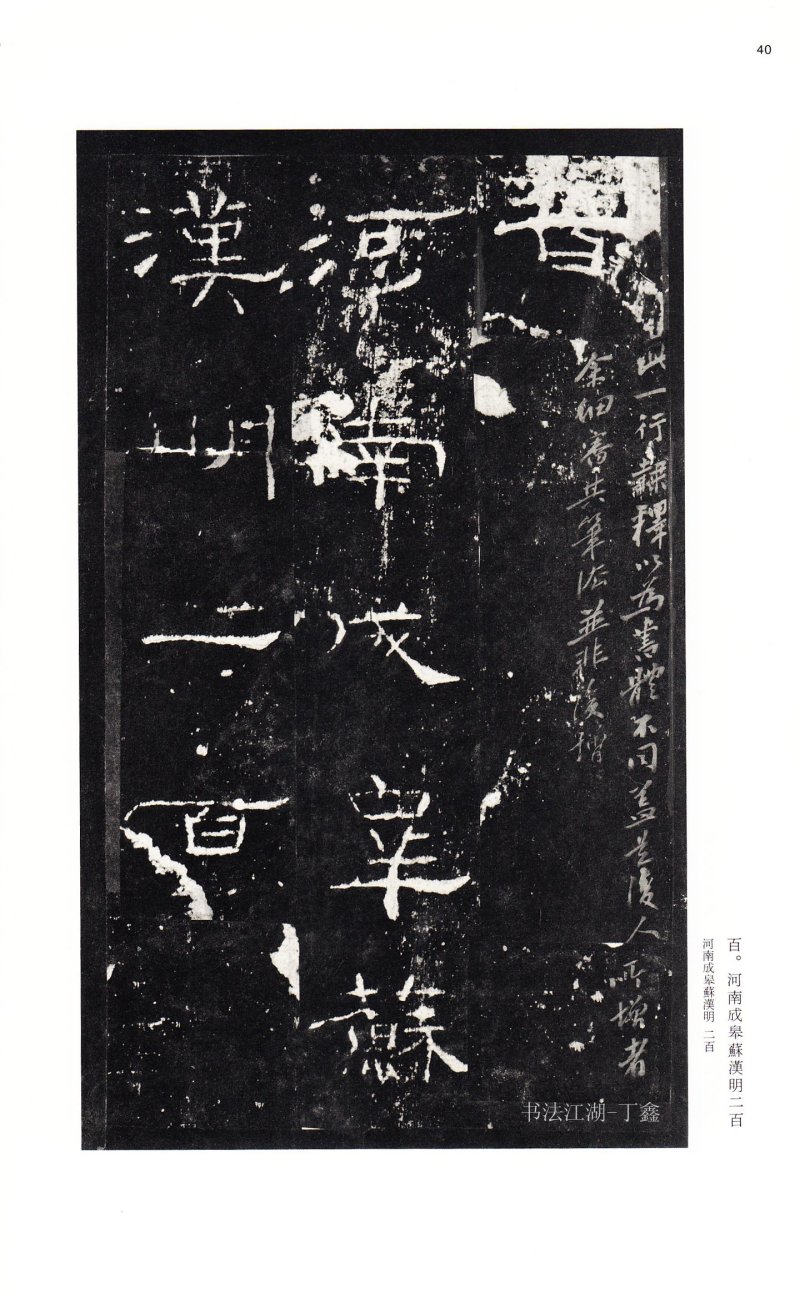 40
百
河南成睪蘇
漢明二百
自此一行隸釋以為書體不同蓋是後人所增者
余細審其筆法並非後增
百。河南成皋蘇漢明二百
河南成皋蘇漢明 二百
书法江湖-丁鑫